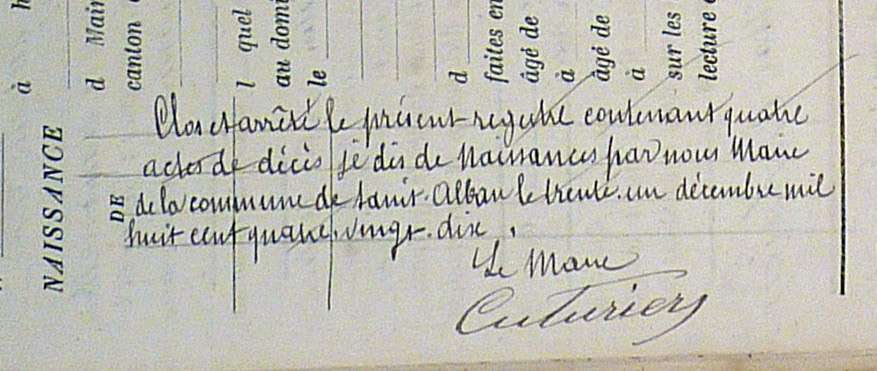 à h
NAISSANCE
DE
d Mair
canton
l quel
au domi
le
d
faites en
âgé de
à
âgé de
à
sur les
lecture
Clos et arrêté le présent registre contenant quatre
actes de décès je dis de Naissances par nous Maire
de la commune de Saint-Alban le trente-un décembre mil
huit cent quatre-vingt-dix.
Le Maire
Cuturiers